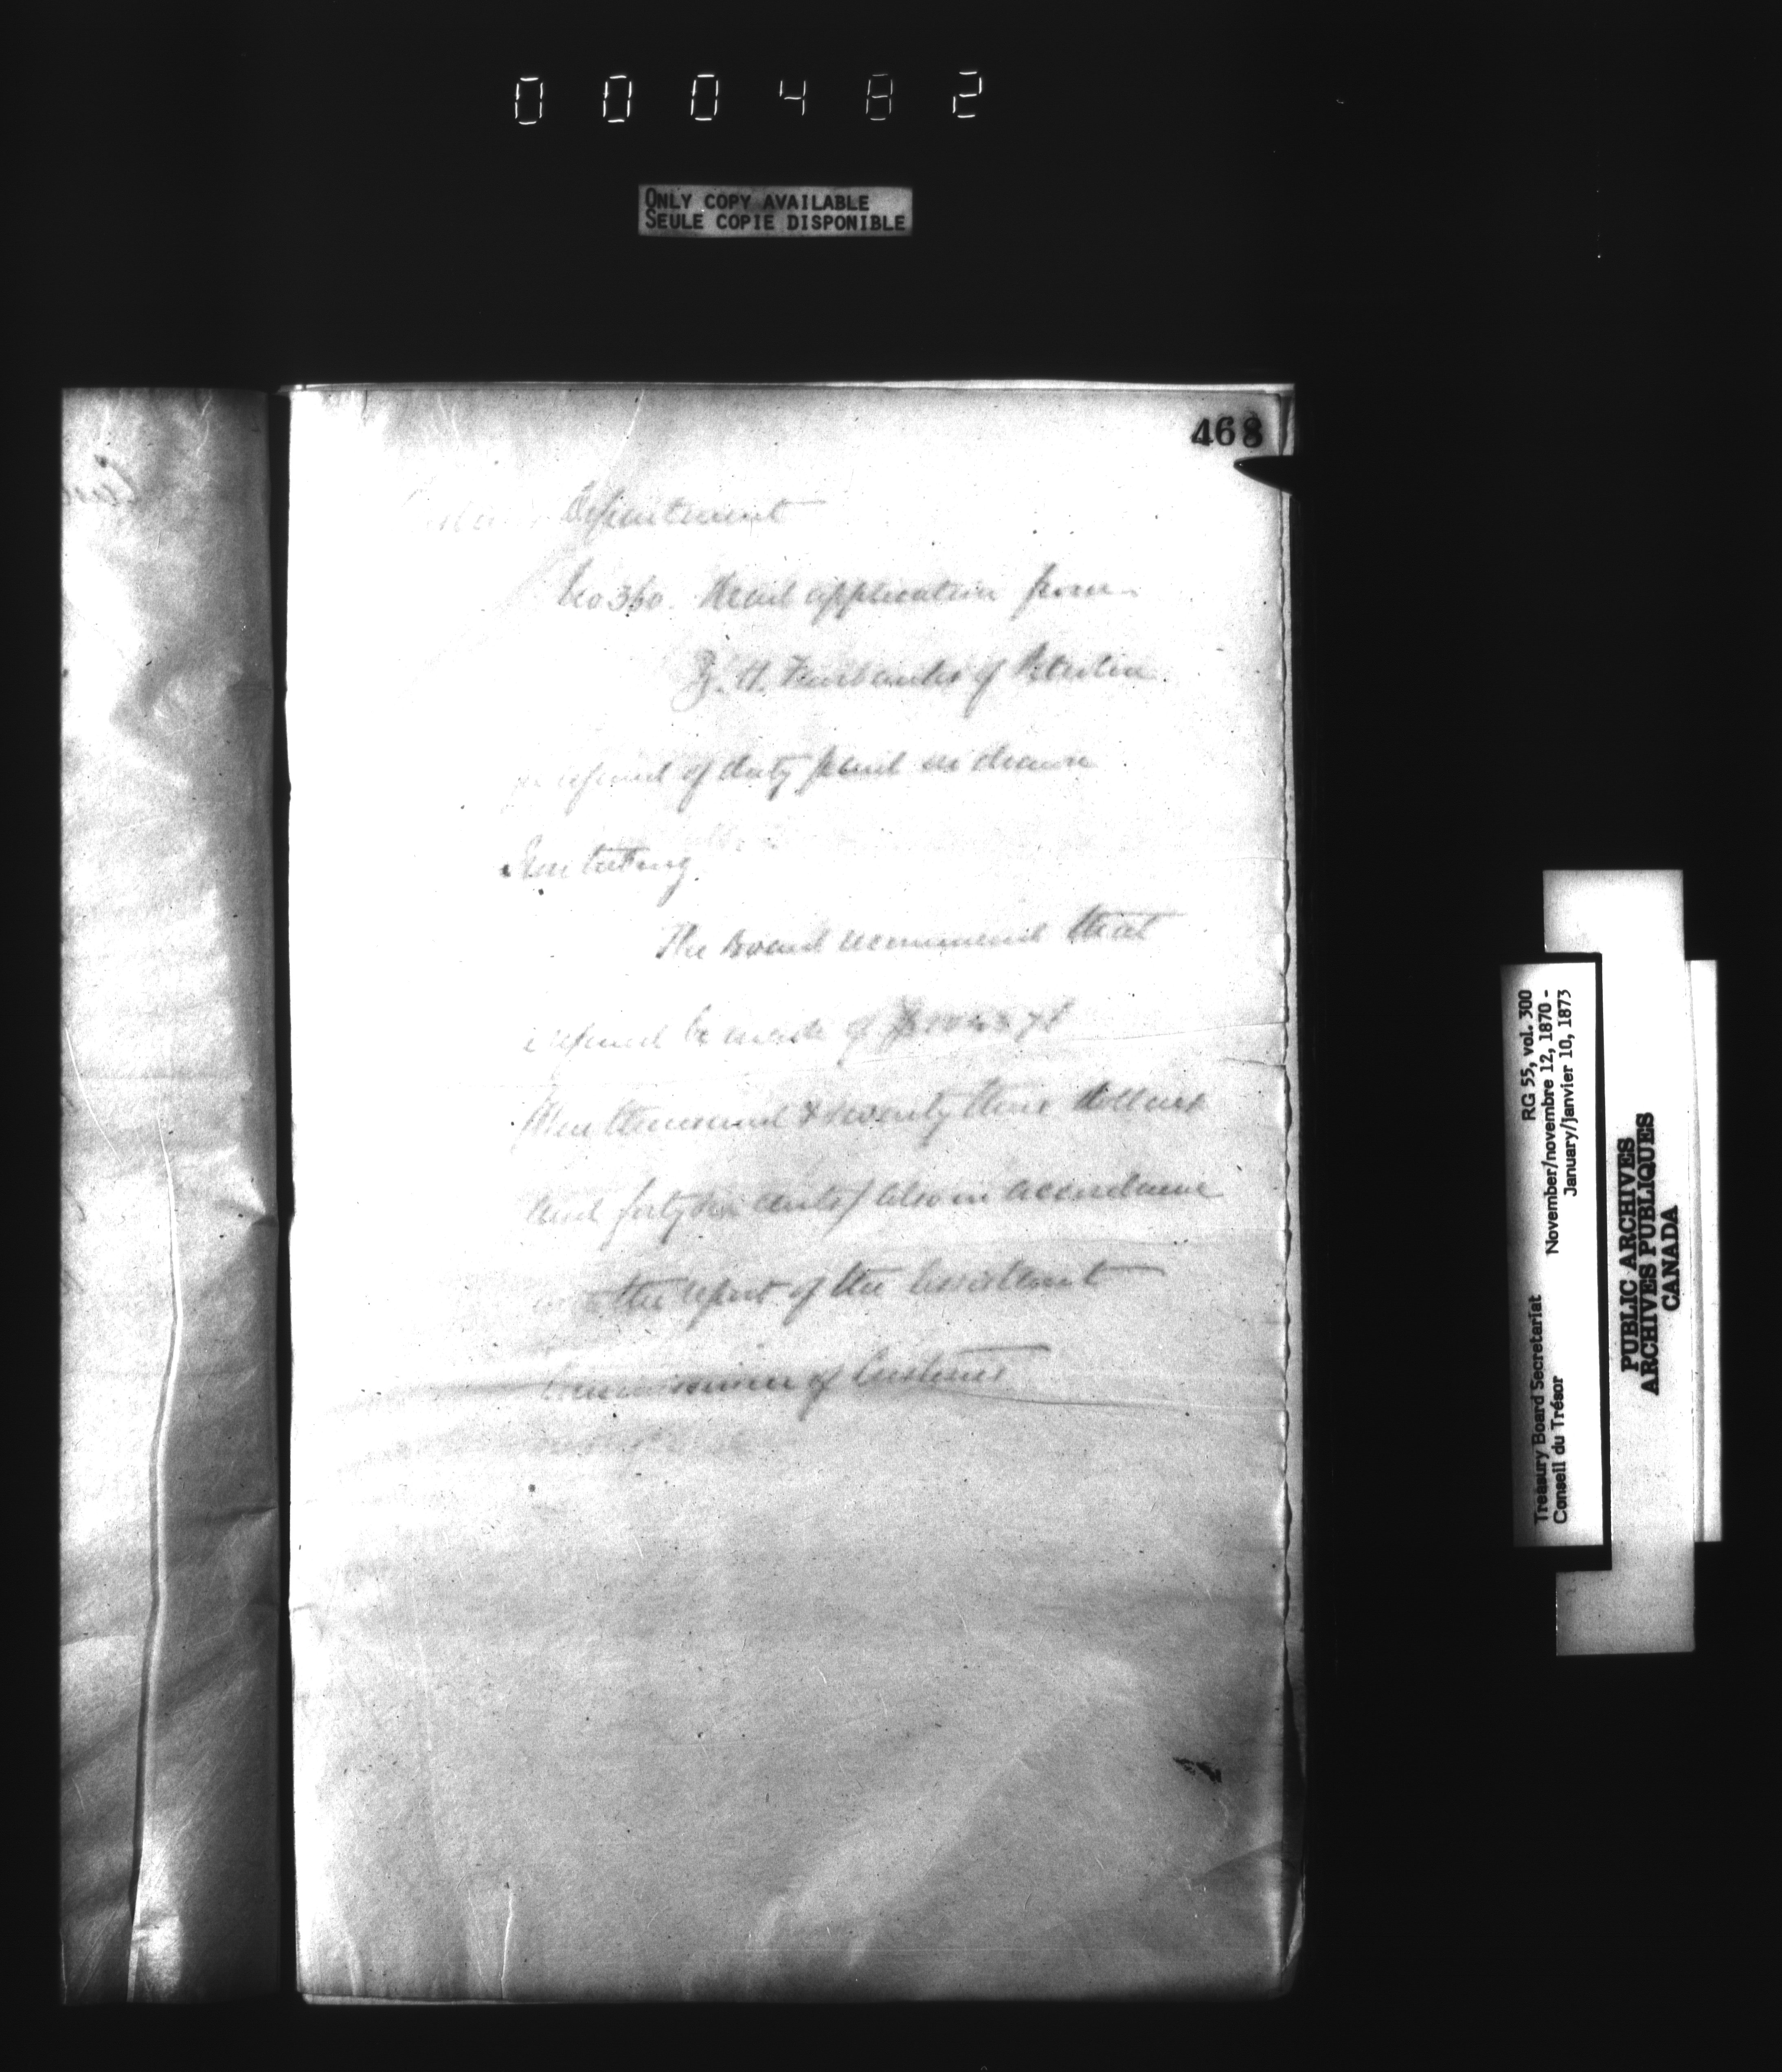 000482
ONLY COPY AVAILABLE
SEULE COPIE DISPONIBLE
468
Department
No 360. Read application from
H. Fairbanks of
refund of duty paid on drawn
Iron tubing
The Board recommend that
refund be made of
thousand & seventy three dollars
and forty six cents) also in accordance
with the report of the Assistant
Commissioner of Customs
Treasury Board Secretariat RG 55, vol. 300
Conseil du Trésor November/novembre 12, 1870 -
January/janvier 10, 1873
PUBLIC ARCHIVES
ARCHIVES PUBLIQUES
CANADA